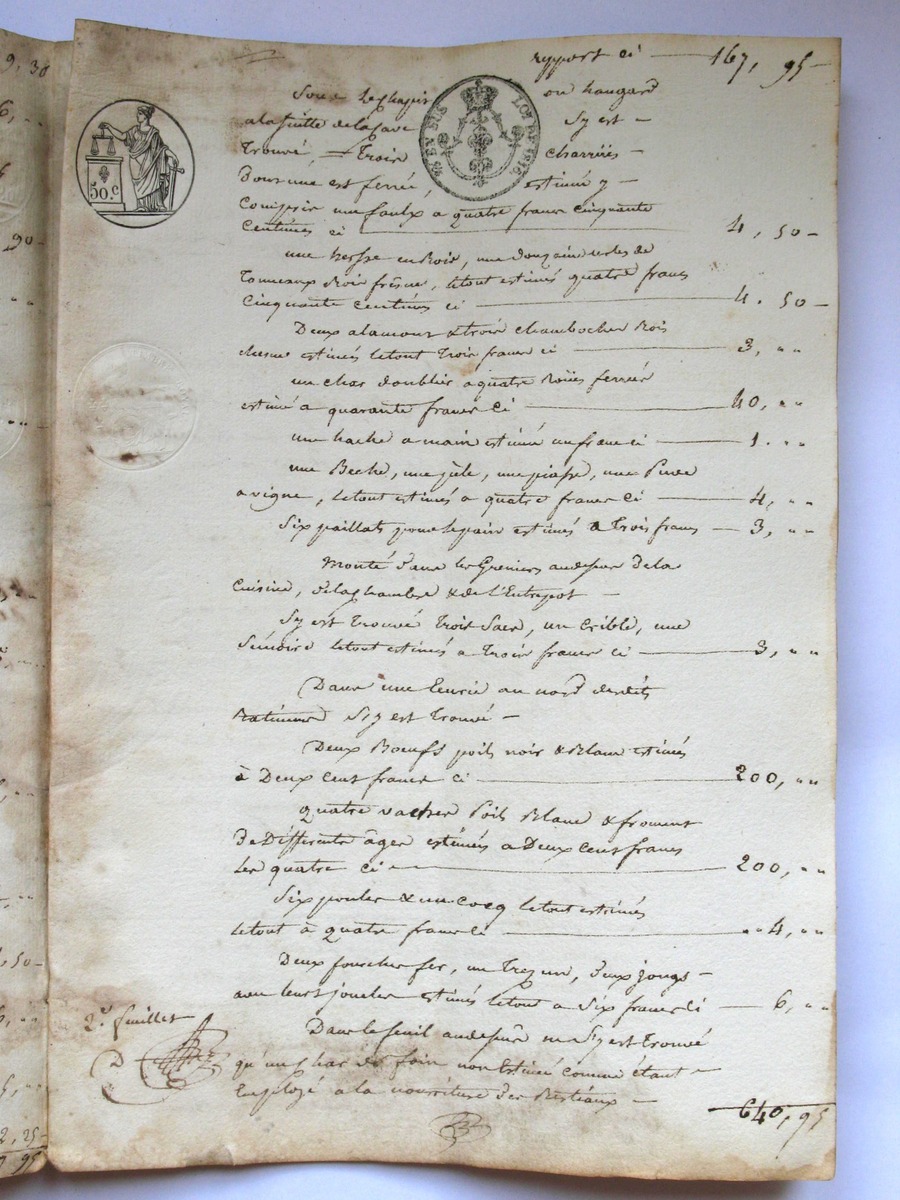 9, 30
6, "
90 -
, 50 -
2, 25 -
95
rapport ci — 167, 95 -
Sous le chapit ou hangard
a la suitte de la cave s'y est -
Trouvé, = Trois charrües -
Dont une est ferrée, estimé y -
Compris une faulx a quatre francs cinquante
Centimes ci — 4, 50 -
une herse en Bois, une douzaine de
Tonneaux Bois frêne, le tout estimés quatre francs
Cinquante centimes ci — 4. 50 -
Deux alamour & trois chambocher Bois
chesne estimés le tout Trois francs ci — 3, " "
un char doublier a quatre Roües ferrées
estimé a quarante francs Ci — 40, " "
une hache a main estimée un franc ci — 1. " "
une Beche, une , une piasse, une
a vigne, le tout estimés a quatre francs Ci — 4, " "
Six paillats pour le pain estimés a Trois francs — 3, " "
Monté dans les Greniers au dessus de la
Cuisine, de la chambre & de l'Entrepot -
S'y est Trouvé Trois Sacs, un Crible, une
le tout estimés a Trois francs Ci — 3, " "
Dans une Ecurie au nord desdits
Batiments S'i y est Trouvé -
Deux Boeufs poils noir & Blanc estimés
à Deux Cent francs Ci — 200, " "
quatre vaches Poil Blanc & froment
De Différents âges estimés a Deux Cent francs
les quatre Ci — 200, " "
Six poules & un cocq le tout estimés
le tout à quatre francs Ci — " " 4, " "
Deux fourches fer, un Trezin, Deux jougs -
avec leurs joucles estimés le tout a Six francs Ci — 6, " "
Dans le feuil au dessus ne s'y est Trouvé
qu'un char de foin non Estimé comme étant -
Employé a la nourriture des Bestiaux -
640, 95
2.e feuillet
D
50.c
25 EN SUS
LOI DE 1816